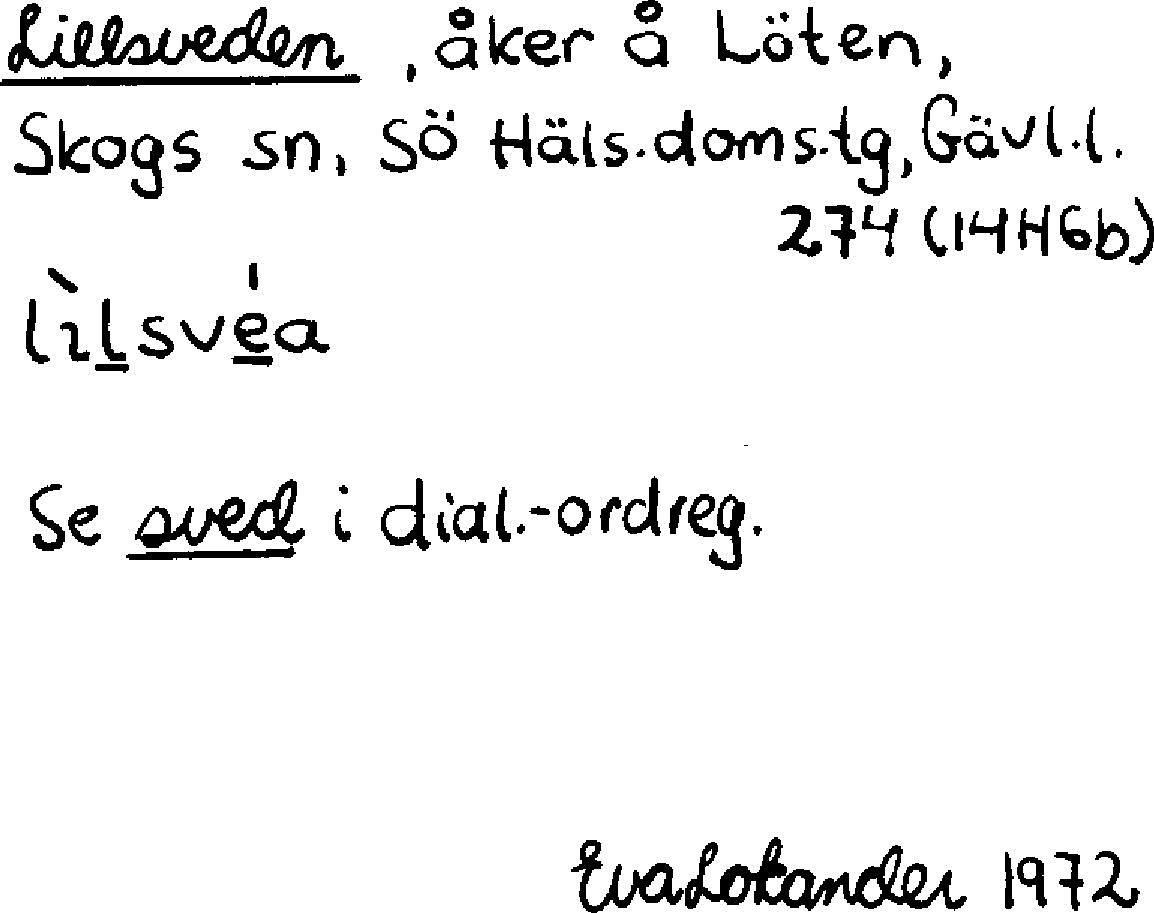 Lillsveden, åker å Löten,
Skogs sn, Sö Häls. doms.tg, Gävl.l.
274 (14H6b)
lìlsvéa
Se sved i dial.-ordreg.
Eva Lokander 1972